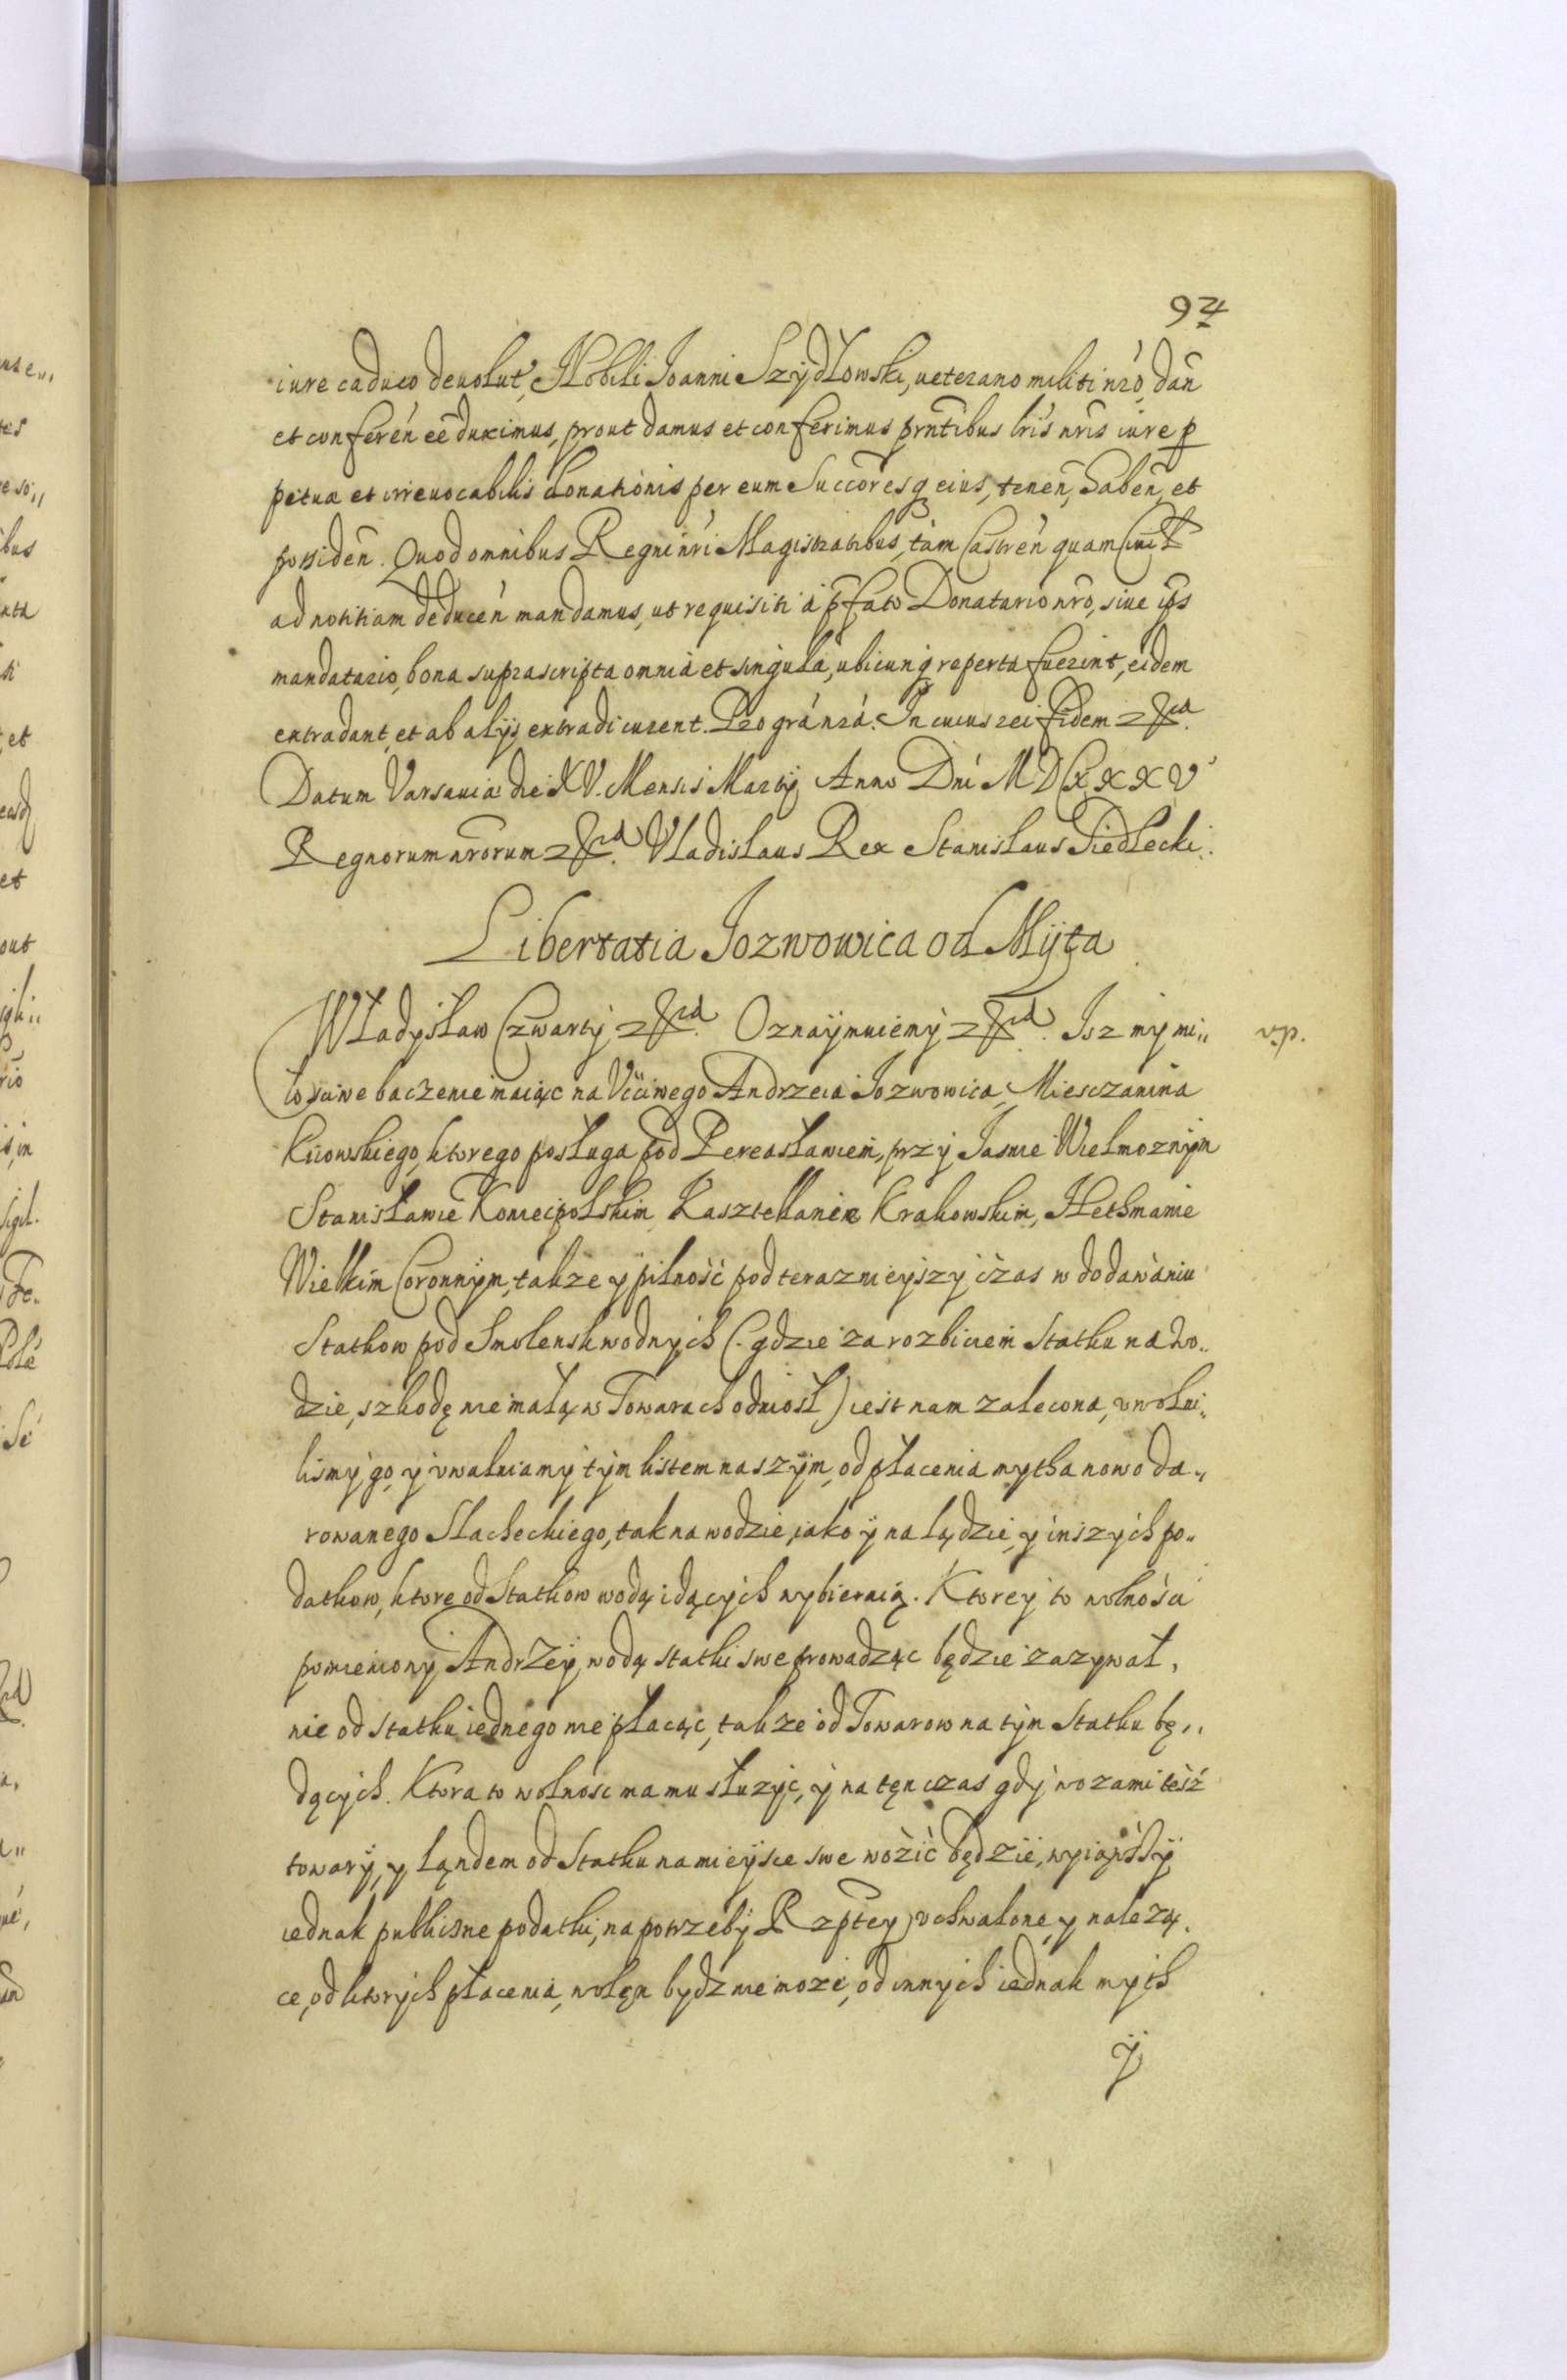 94
iure caduco deuolut, Nobili Joanni Szydłowski, ueterano militi nro, dan
et conferen ee duximus, prout damus et conferimus prntibus lris nris iure p
petuæ et irreuocabilis donationis per eum Succoresq eius, tenen, haben, et
possiden. Quod omnibus Regni nri Magistratibus, tam Castren quam Ciuil
ad notitiam deducen mandamus, ut requisiti á pfato Donatario nro, siue ips
mandatario, bona suprascripta omnia et singula, ubicunq reperta fuerint, eidem
extradant, et ab alijs extradi curent. Pro gra nra. In cuius rei fidem &c.
Datum Varsauiæ die XV. Mensis Martij Anno Dni MDCXXXV
Regnorum nrorum &c. Vladislaus Rex Stanislaus Siedlecki.
Libertatia Jozwowica od Myta
Władysław Czwarty &c. Oznaymuiemy &c. Isz my mi„
łosciwe baczenie maiąc na Vcciwego Andrzeia Jozwowica, Miesczanina
Kiiowskiego, ktorego posługa pod Pereasławiem, przy Jasnie Wielmoznym
Stanisławie Koniecpolskim Kasztellanie Krakowskim, Hethmanie
Wielkim Coronnym, takze y pilność pod terazneiyszy czas w dodawaniu
Statkow pod Smolensk wodnych (. gdzie za rozbiciem Statku na wo„
dzie, szkodę niemałą w Towarach odniosł) iest nam zalecona, vwolni„
lismy go, y vwalniamy tym listem naszym, od płacenia mytha nowo da„
rowanego Slacheckiego, tak na wodzie, iako y na lądzie, y inszych po„
datkow, ktore od Statkow wodą idących wybieraią. Ktorey to wolności
pomieniony Andrzey, wodą statki swe prowadząc będzie zazywał,
nie od statku iednego nie płacąc, takze od Towarow na tym Statku bę„
dących. Ktora to wolnosc ma mu słuzyc, y na tęn czas gdy wozami tesz
towary, y lądem od Statku na mieysce swe woźić będzie, wyiąwszy
iednak publiczne podatki, na potrzeby Rzptey vchwalone, y nalezą.
ce, od ktorych płacenia, wolęn bydz nie moze, od innych iednak myth
y
v.p.